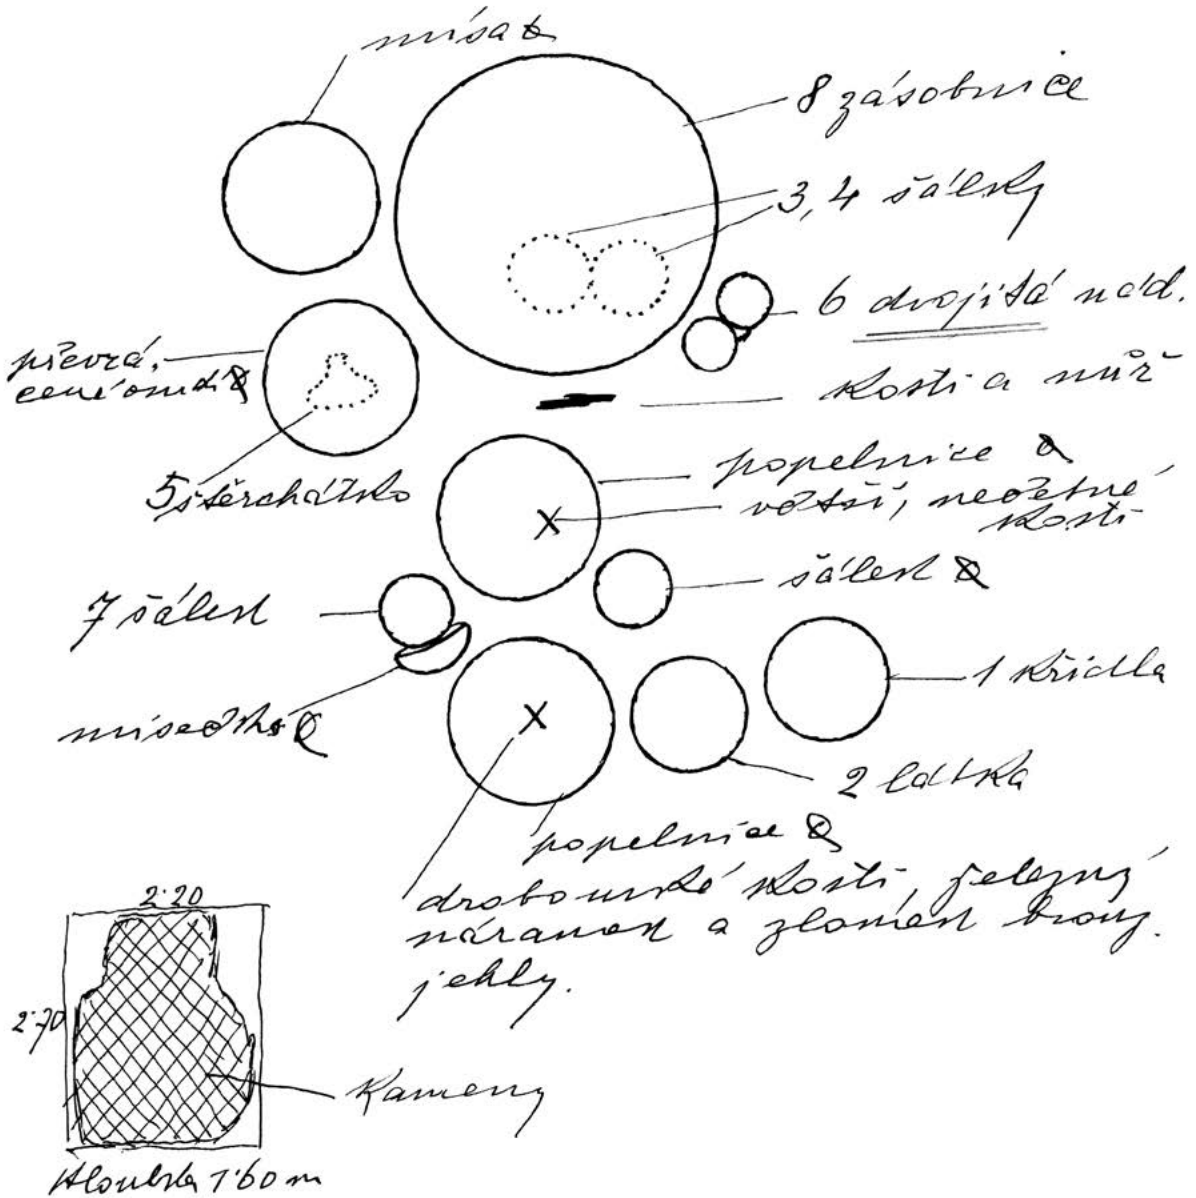 mísa
8 zásobnice
3,4 šálky
6 dvojitá nád.
převrá-
cené
kosti a nůž
5 štěrchátko
popelnice
větší, nečetné
kosti
šálek
7 šálek
1 křidla
misečka
2 látka
popelnice
drobounké kosti, železný
náramek a zlomek bronz.
jehly.
2·20
2·70
Kameny
Hloubka 1·60 m